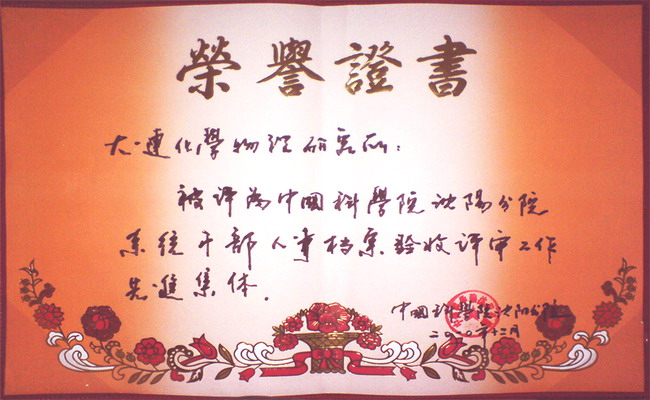 榮譽證書
大連化學物理研究所：
被评为中國科學院沈陽分院
系統干部人事档案验收评审工作
先進集体.
中國科學院沈阳分院
二〇〇〇年十二月